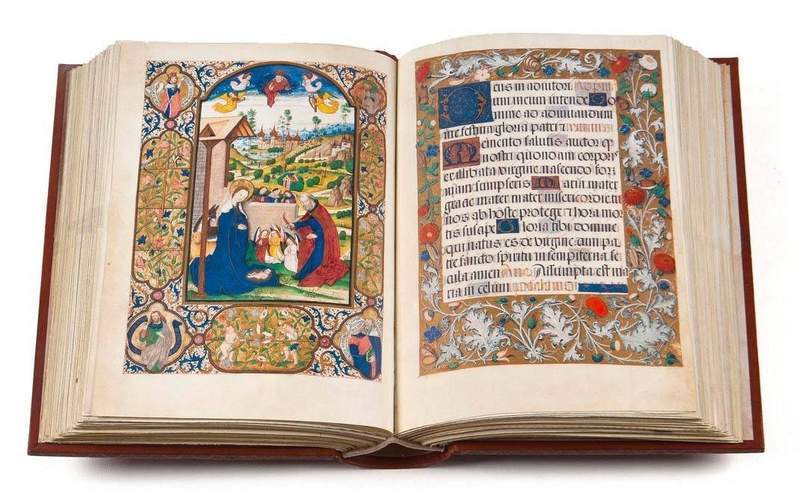 Deus in adiutori
um meum intende Do
mine ad adiuuandum
me festina gloria patri
Memento salutis auctor q
nostri quondam corporis
ex illibata virgine nascendo for
mam sumpseris Maria mater
gracie mater misericordie tu
nos ab hoste protege et hora mor
tis suscipe Gloria tibi domine
qui natus es de virgine cum pa
tre sancto spiritu in sempiterna se
cula amen Assumpta est ma
ria in celum